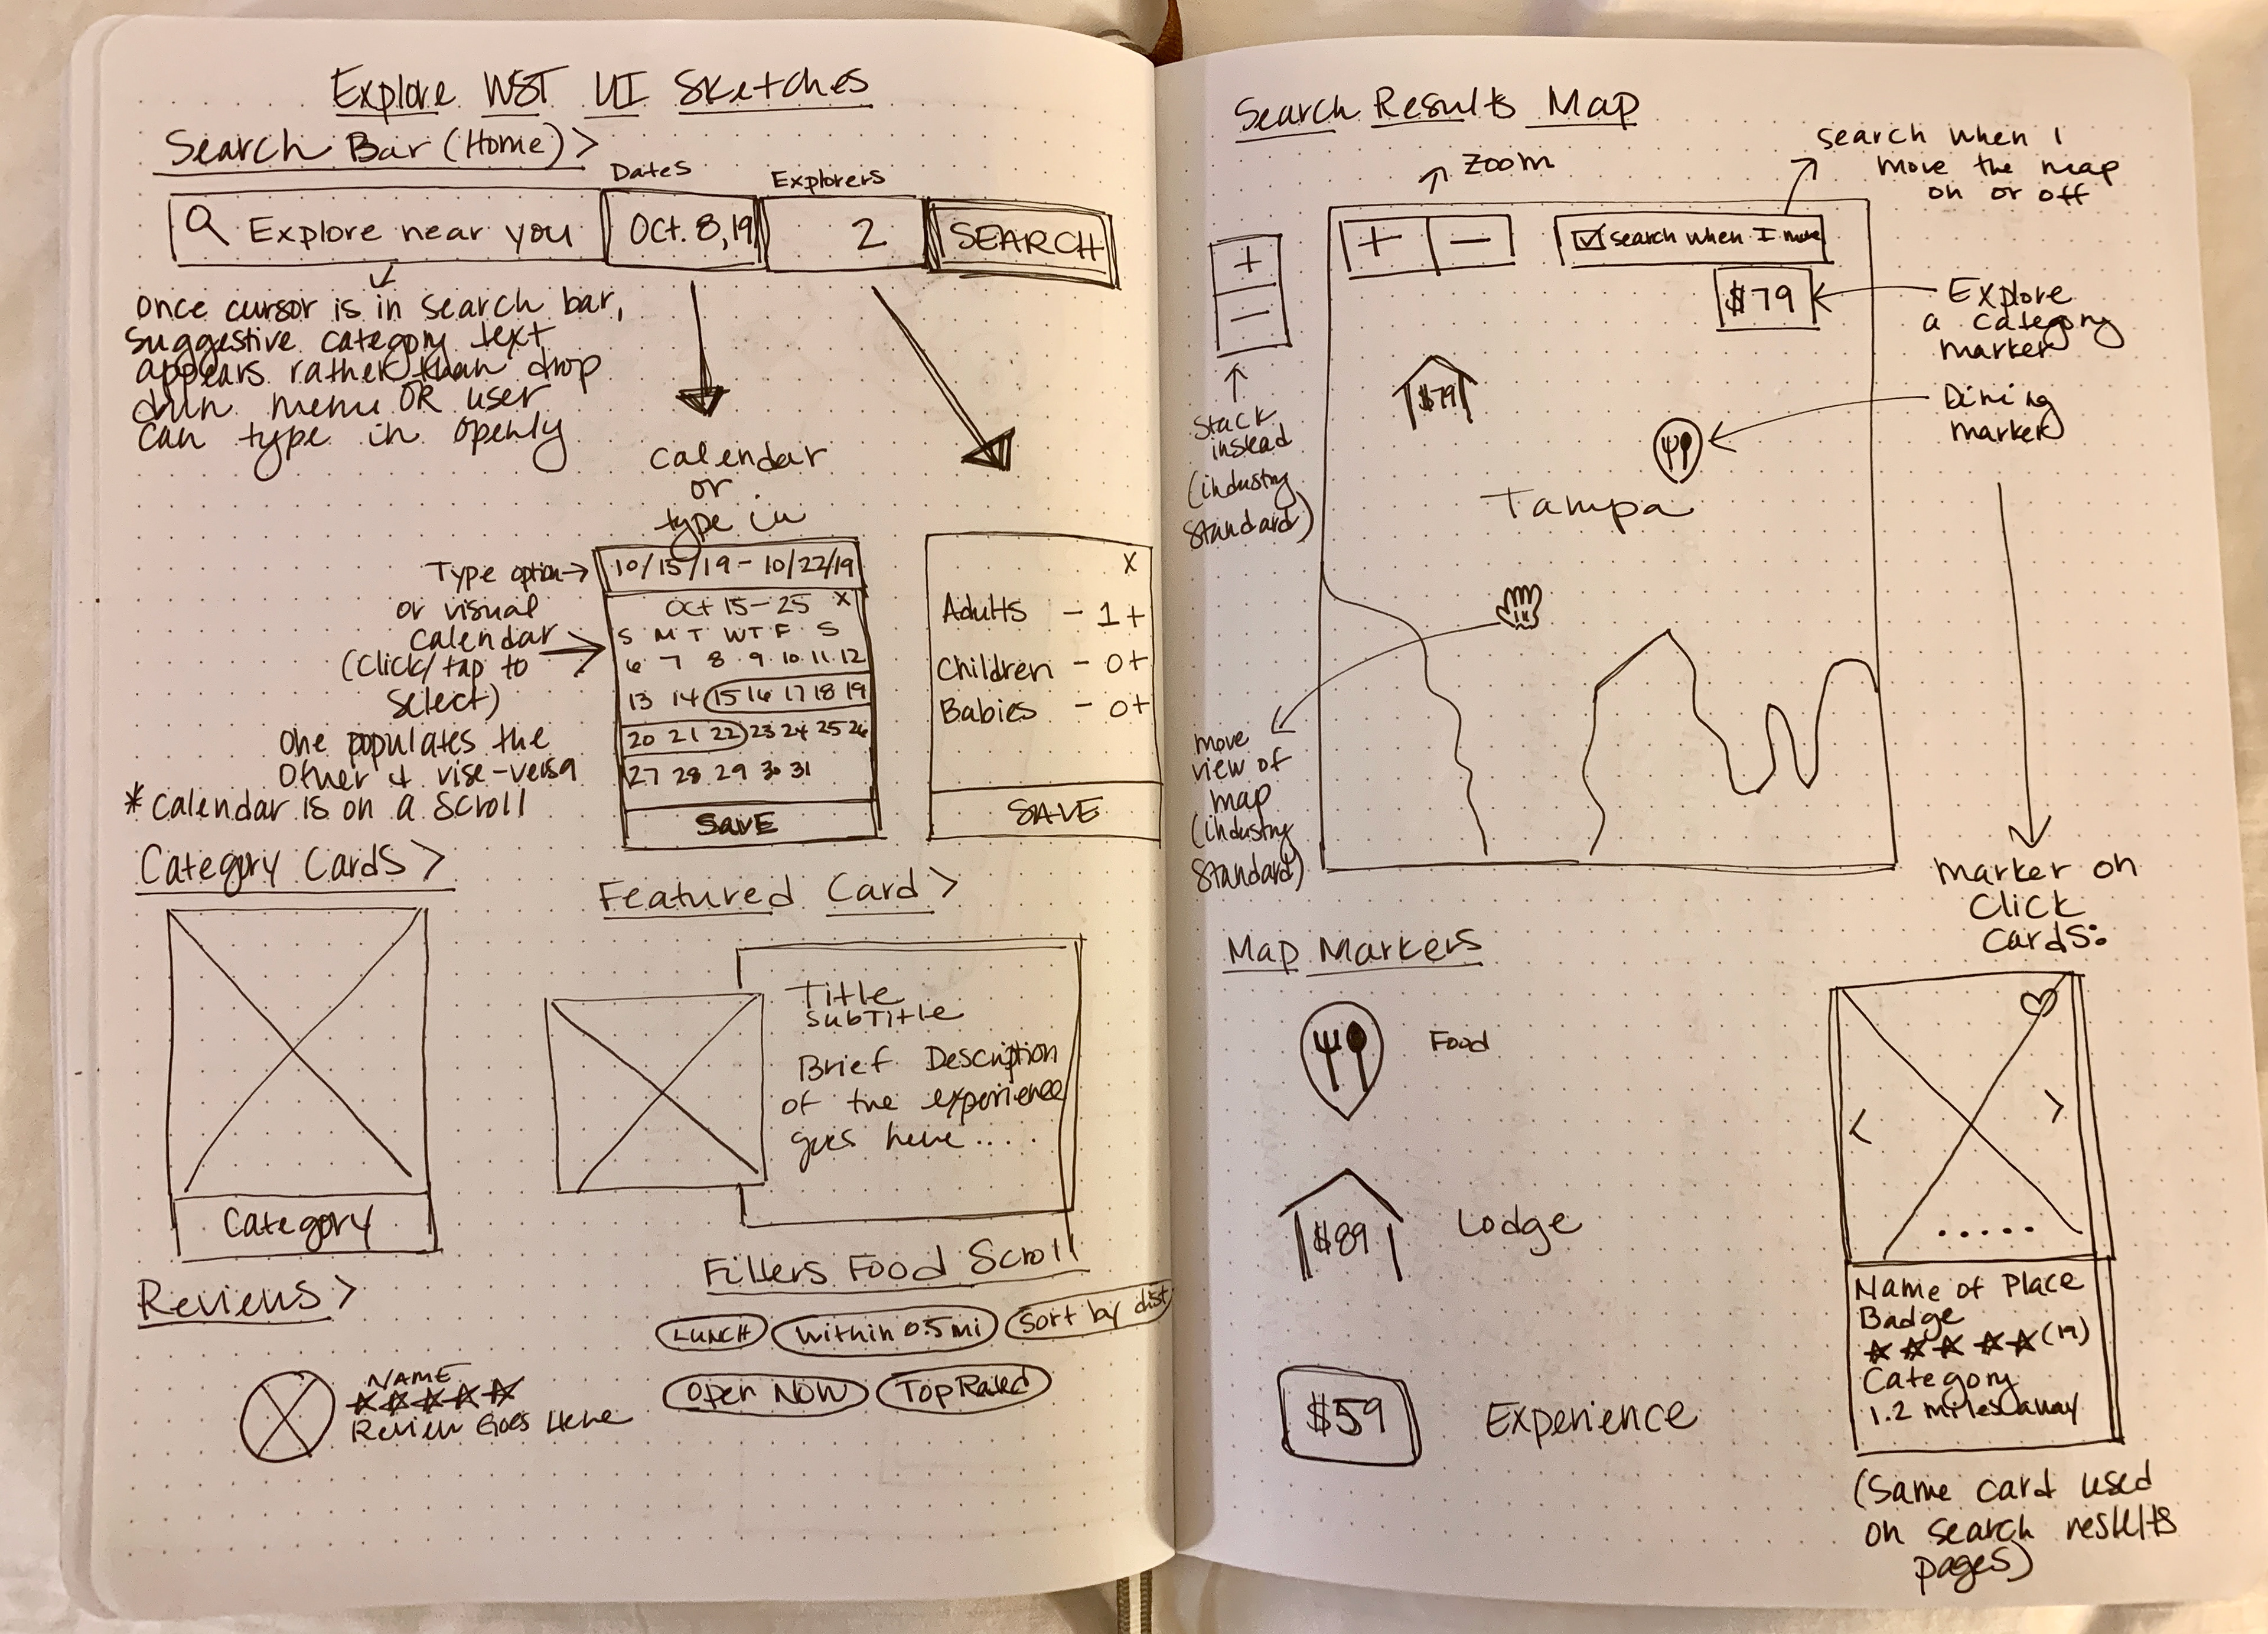 Explore WST UI Sketches
Search Bar (Home) >
Dates
Explorers
Explore near you
Oct. 8, 19
2
SEARCH
once cursor is in search bar,
suggestive category text
appears rather than drop
down menu OR user
can type in openly
calendar
or
type in
Type option →
or visual
calendar
(click/tap to
select)
One populates the
other & vise-versa
* Calendar is on a scroll
10/15/19 - 10/22/19
Oct 15 - 25 X
S M T W T F S
6 7 8 9 10 11 12
13 14 15 16 17 18 19
20 21 22 23 24 25 26
27 28 29 30 31
SAVE
X
Adults - 1 +
Children - 0 +
Babies - 0 +
SAVE
Category Cards >
Category
Featured Card >
Title
SubTitle
Brief Description
of the experience
goes here ....
Reviews >
NAME
Review Goes Here
Filters Food Scroll
LUNCH
within 0.5 mi
Sort by dist
Open Now
Top Rated
Search Results Map
zoom
search when I
move the map
on or off
+ -
search when I move
+
-
Stack
instead
(industry
Standard)
$79
Explore
a category
marker
$79
Dining
marker
Tampa
move
view of
map
(industry
Standard)
marker on
click
cards:
Map Markers
Food
$89
Lodge
$59
Experience
< >
.....
Name of Place
Badge
(19)
Category
1.2 miles away
(Same card used
on search results
pages)